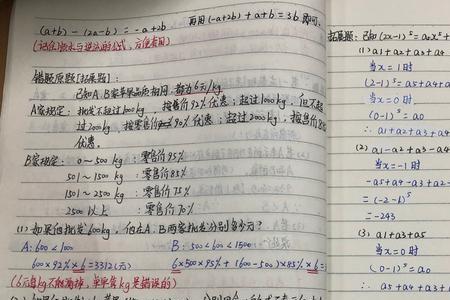 (a+b) - (2a-b) = -a+2b 再用(-a+2b)+a+b=3b 即可.
错题原题[拓展题]:
已知A.B家苹果品质相同,都为6元/kg.
A家规定:批发不超过1000kg,按零售价92%优惠;超过1000kg,但不超
过2000kg,按零售价90%优惠;超过2000kg,按售价
优惠.
B家规定: 0~500kg :零售价95%
501~1500kg :零售价85%
1501~2500kg :零售价75%
2500以上 :零售价70%
(1)如果他批发600kg,他在A.B两家批发分别多少元?
A: 600<1000 B: 500<600<1500
600×92%×6=3312(元) 6×500×95%+(600-500)×85%×6=
(6元每kg不能漏掉,单单算kg是错误的)
拓展题:已知(2x-1)⁵=a₀x⁵+
(1) a1+a2+a3+a4
当x=1时
(2-1)⁵=a5+a4+a
当x=0时
(0-1)⁵=a0
∴a1+a2+a3+a4
(2) a1-a2+a3-a4
当x=-1时
-a5+a4-a3+a2-
=(-2-1)⁵
=-243
(3) a1+a3+a5
当x=0时
(0-1)⁵=a0